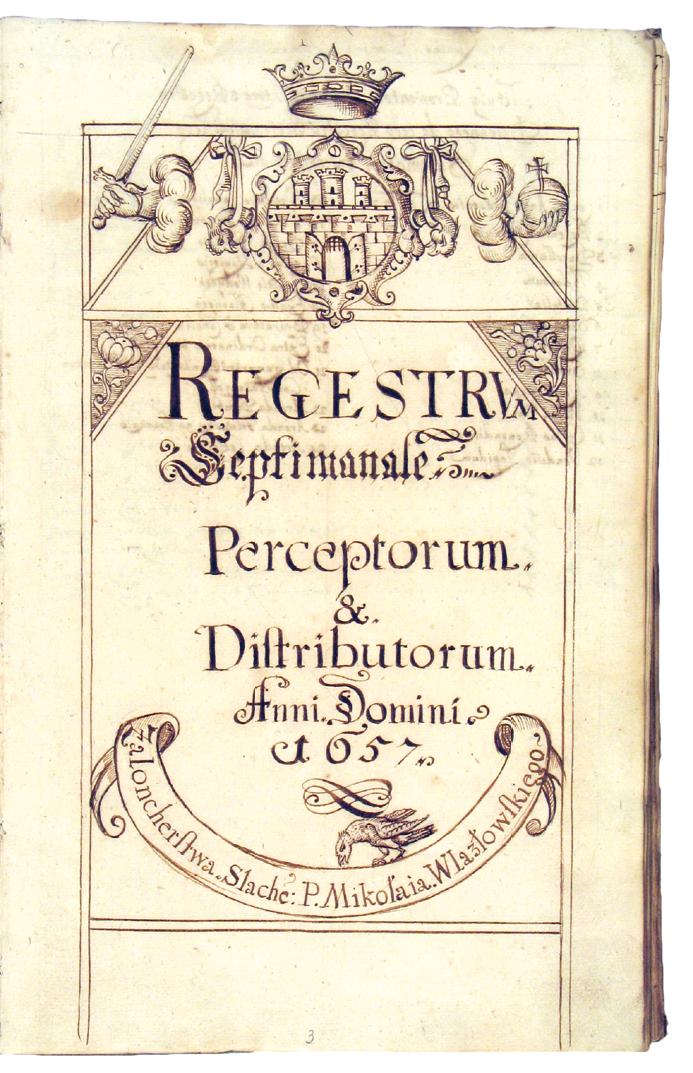 REGESTRVM
Septimanale
Perceptorum
&.
Distributorum
Anni Domini
1657
Za Loncherstwa. Slache: P. Mikołaia. Wlazłowskiego
3